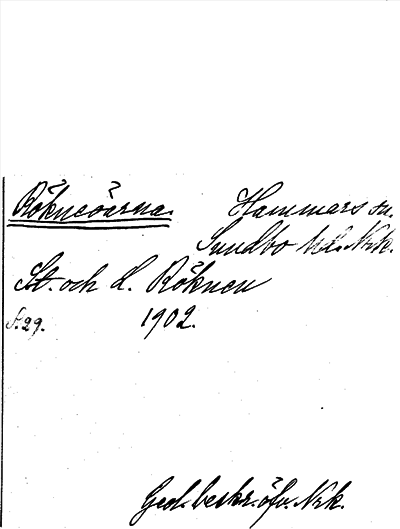 Rökneöarna. Hammars sn.
Sundbo hd. Nrk.
St. och L. Röknen
S. 29. 1902.
Geol. beskr. öfv. Nrk.